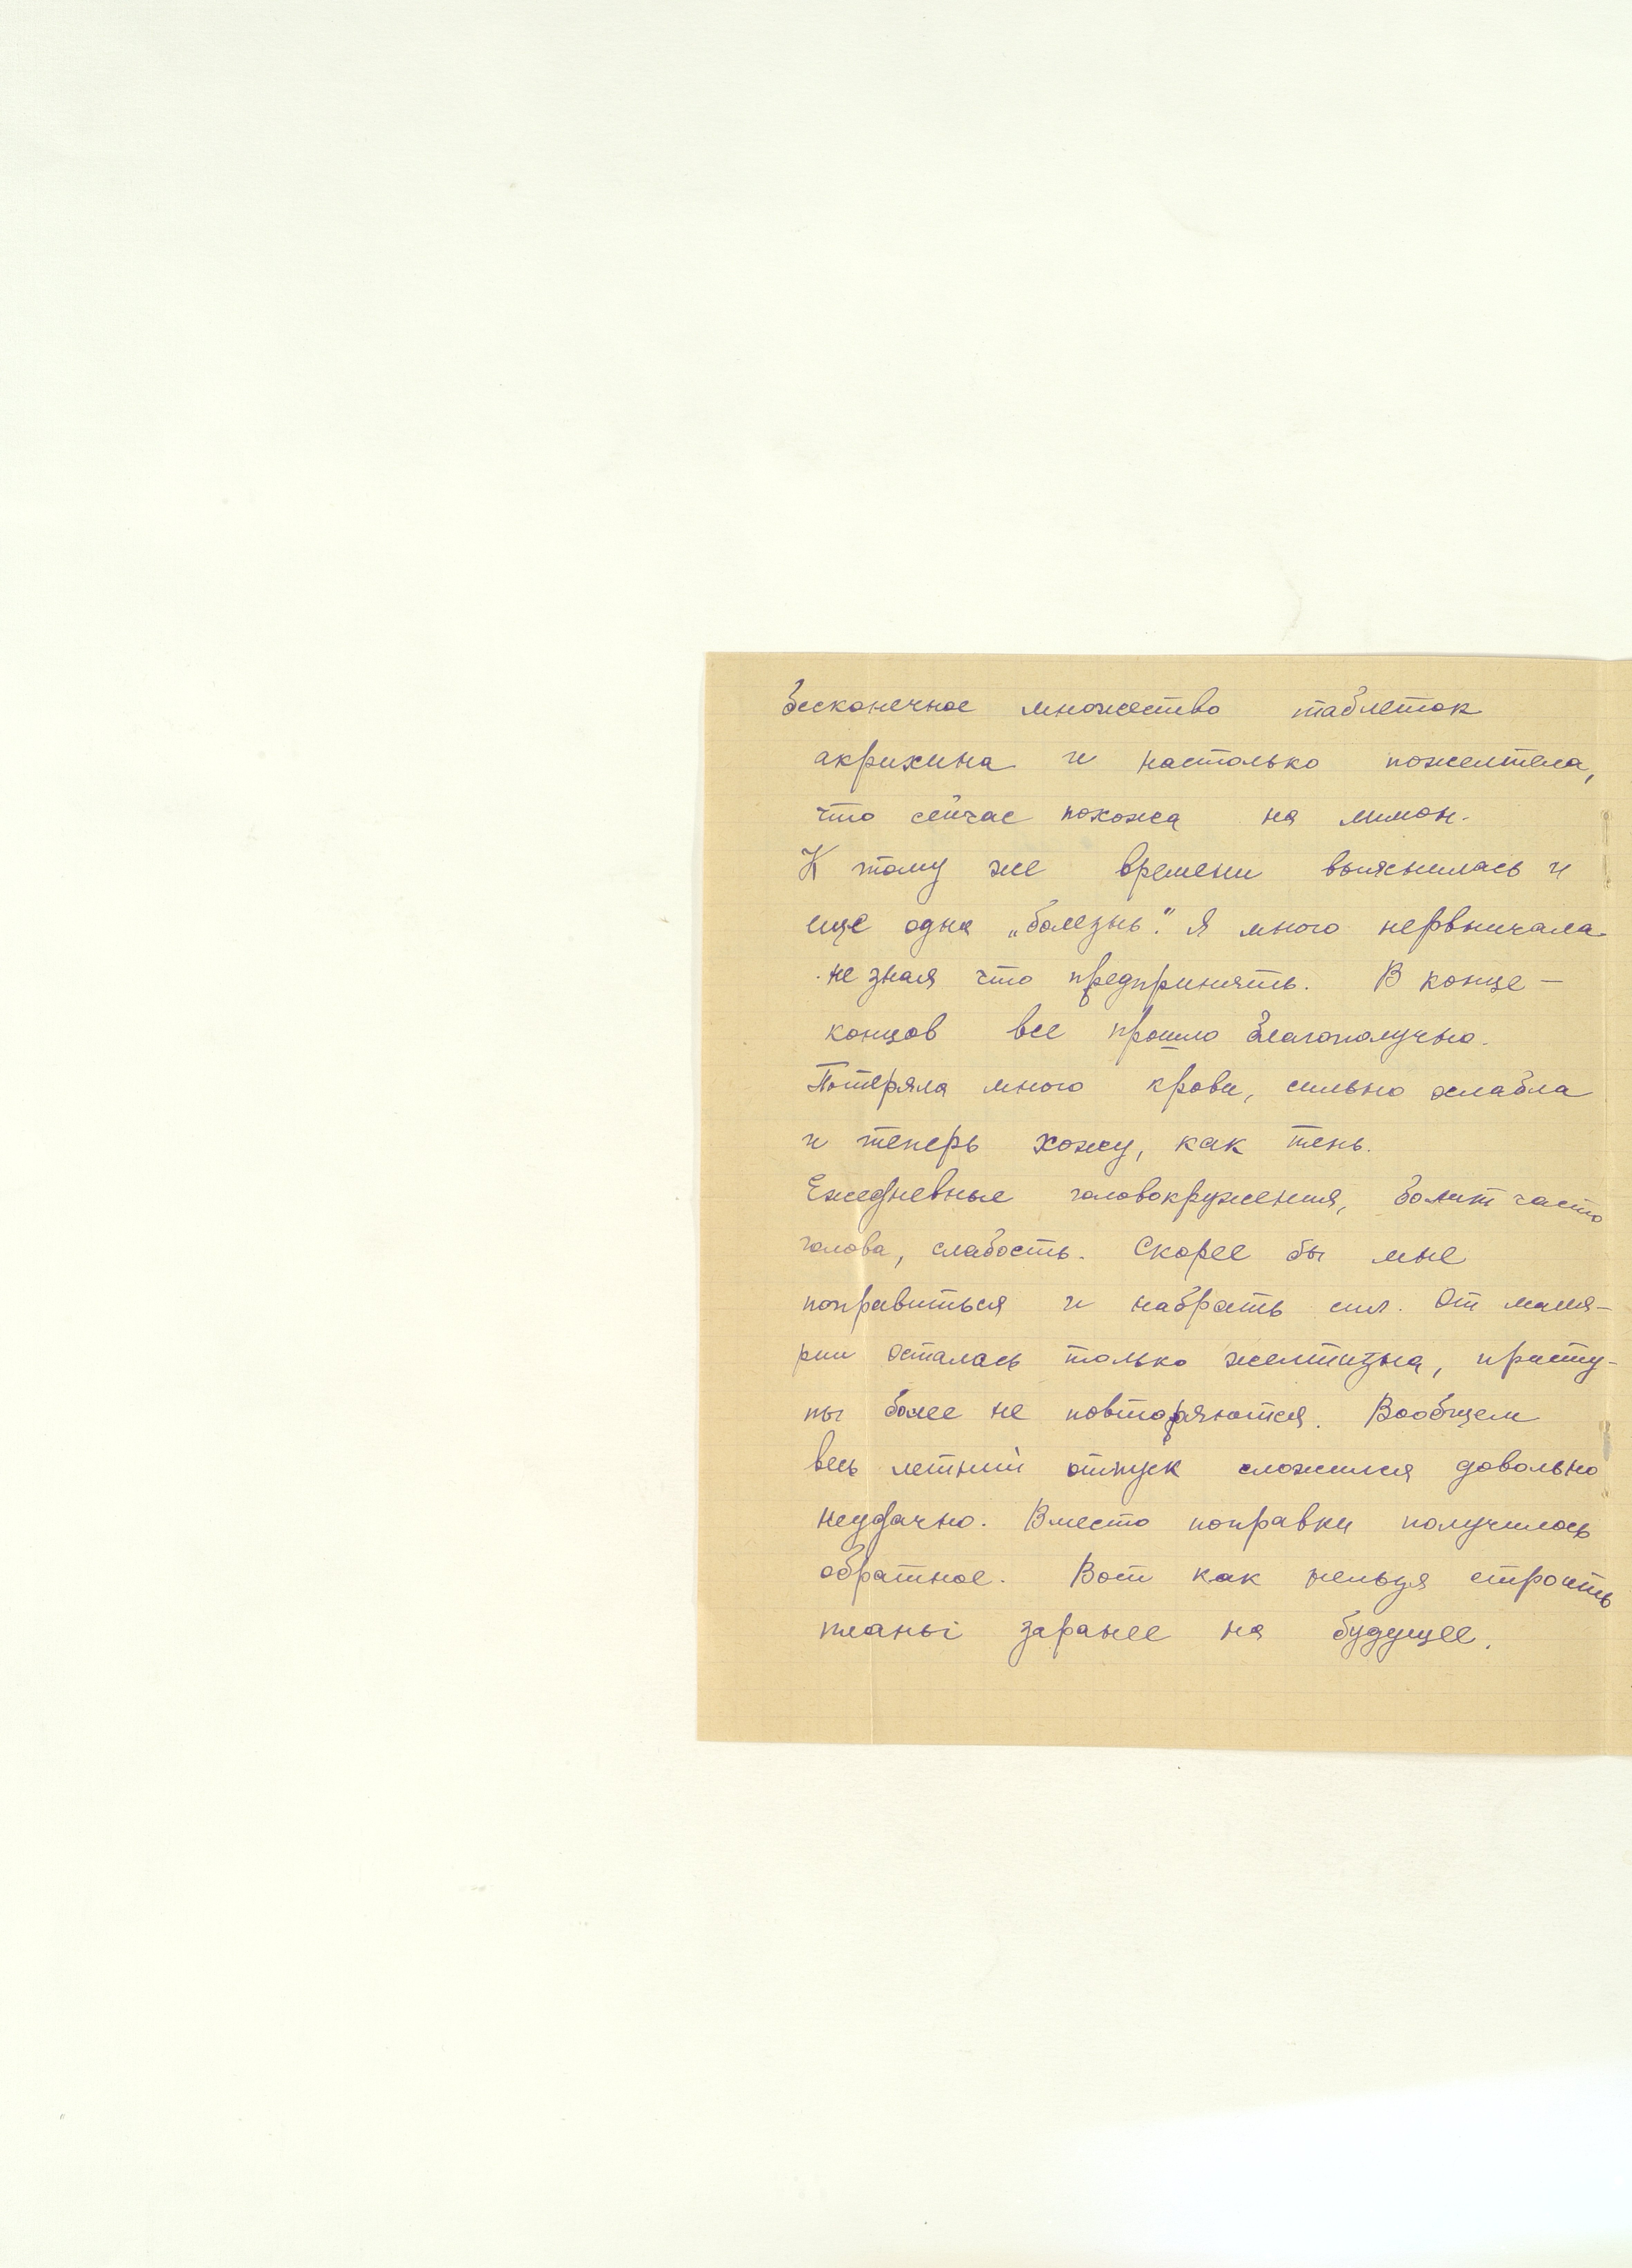 бесконечное множество таблеток
акрихина и настолько пожелтела,
что сейчас похожа на лимон.
К тому же времени выяснилась и
еще одна „болезнь". Я много нервничала
не зная что предпринять. В конце-
концов все прошло благополучно.
Потеряла много крови, сильно ослабла
и теперь хожу, как тень.
Ежедневные головокружения, болит часто
голова, слабость. Скорее бы мне
поправиться и набрать сил. От маля-
рии осталась только желтизна, присту-
пы более не повторяются. Вообщем
весь летний отпуск сложился довольно
неудачно. Вместо поправки получилось
обратное. Вот как нельзя строить
планы заранее на будущее.